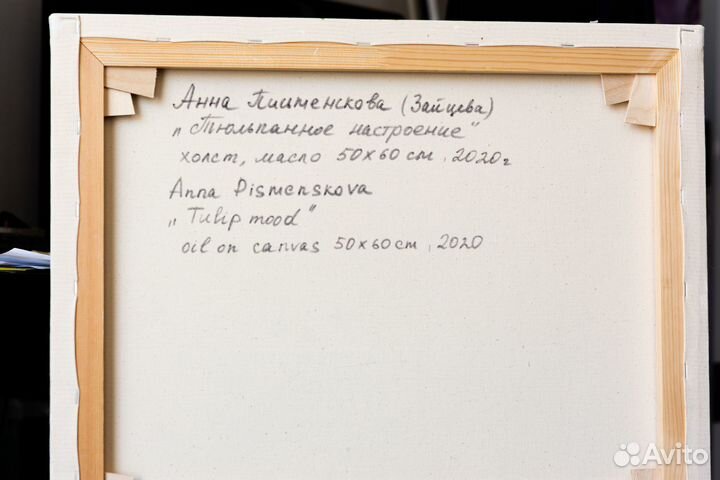 Анна Письменскова (Зайцева)
„Тюльпанное настроение"
холст, масло 50x60 см, 2020г
Anna Pismenskova
„Tulip mood"
oil on canvas 50x60 cm, 2020
Avito